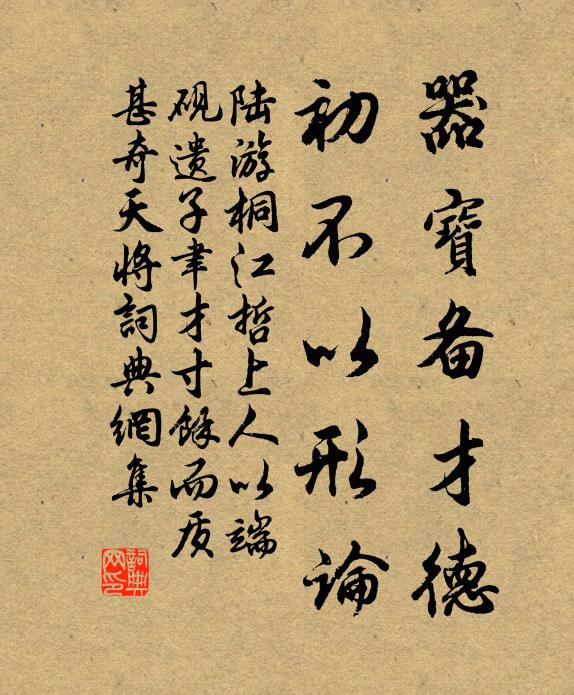 器寶备才德
初不以形论
陆游桐江哲上人以端
砚遗子聿才寸馀而质
甚奇天将詞典網集
詞典网印